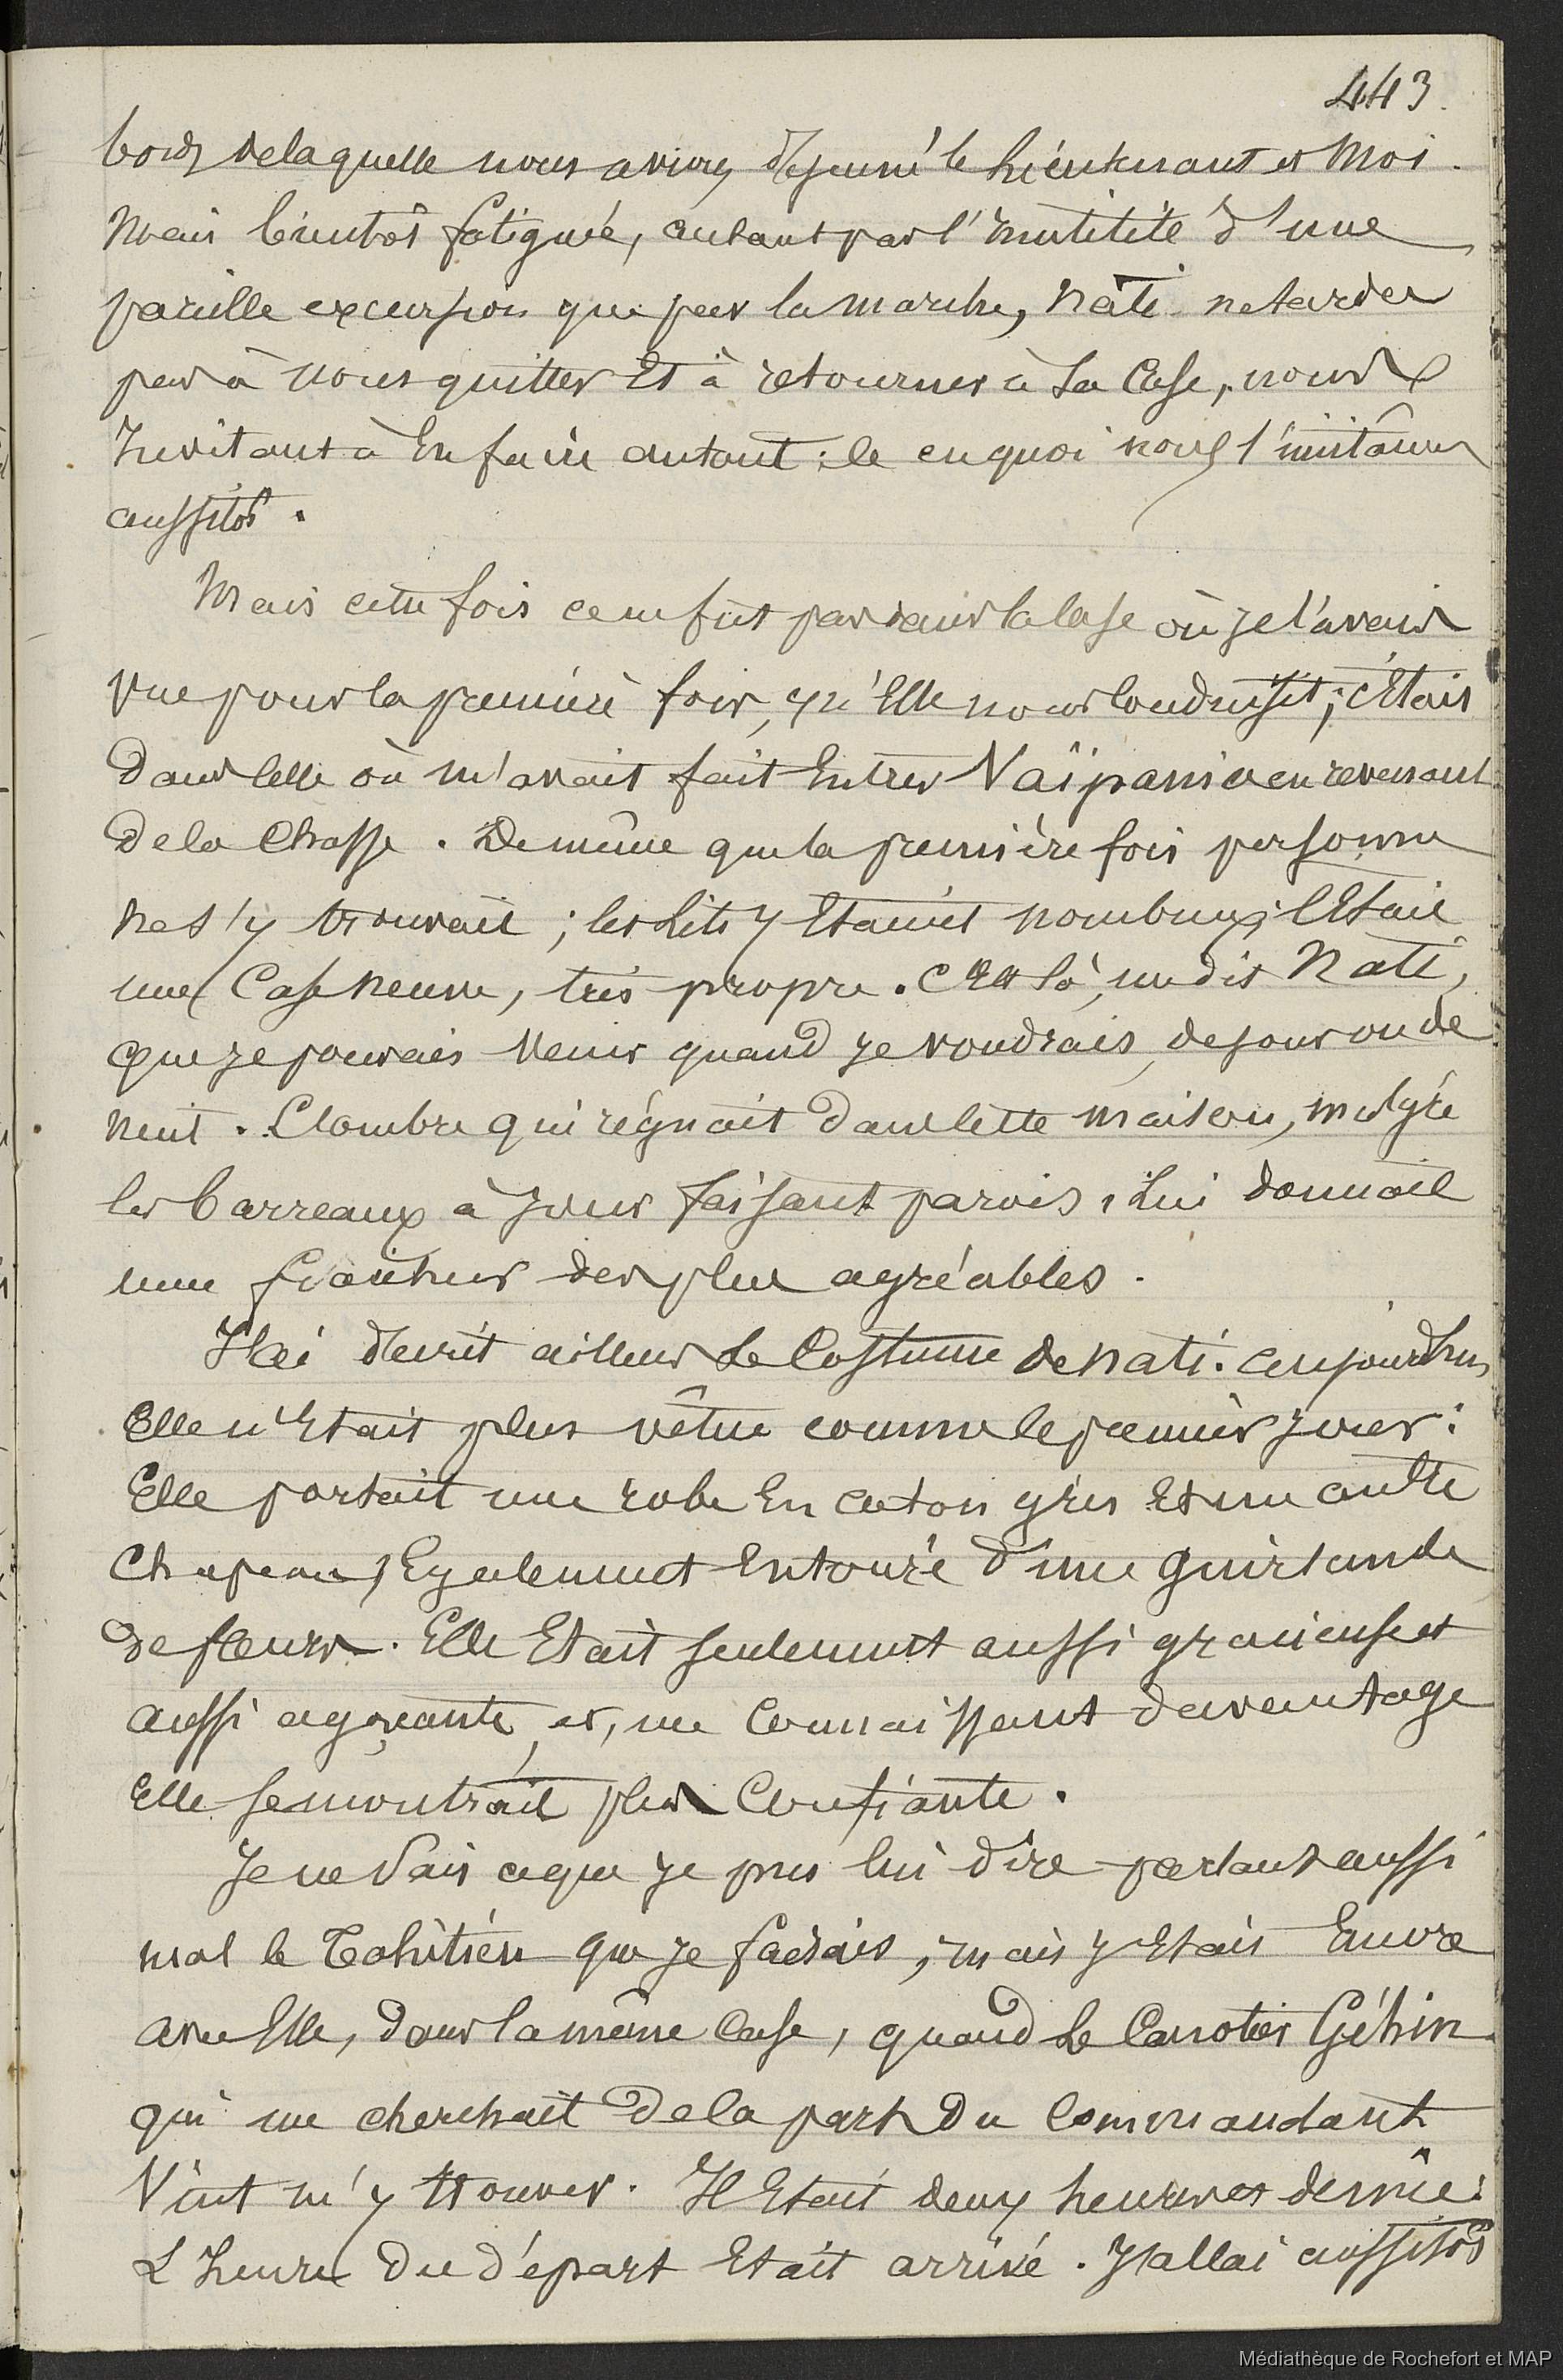 443.
bords de laquelle nous avions déjeuné le lieutenant et moi.
Mais bientôt fatiguée, autant par l'inutilité d'une
pareille excursion que par la marche, Nati ne tarda
pas à nous quitter et à retourner à sa case, nous
invitant à en faire autant : ce en quoi nous l'imitâmes
aussitôt.
Mais cette fois ce ne fut pas dans la case où je l'avais
vue pour la première fois, qu'elle nous conduisit ; c'était
dans celle où m'avait fait entrer Vaïpania en revenant
de la chasse. De même que la première fois personne
ne s'y trouvait ; les lits y étaient nombreux ; c'était
une case neuve, très propre. C'est là, me dit Nati,
que je pouvais venir quand je voudrais, de jour ou de
nuit. L'ombre qui régnait dans cette maison, malgré
les barreaux à jour faisant parois, lui donnait
une fraîcheur des plus agréables.
J'ai décrit ailleurs le costume de Nati. Aujourd'hui
elle n'était plus vêtue comme le premier jour :
Elle portait une robe en coton gris et un autre
chapeau, également entouré d'une guirlande
de fleurs. Elle était seulement aussi gracieuse et
aussi agaçante, et, me connaissant davantage
elle se montrait plus confiante.
Je ne sais ce que je pus lui dire parlant aussi
mal le Tahitien que je faisais, mais j'étais encore
avec elle, dans la même case, quand le canotier Géhin
qui me cherchait de la part du commandant
vint m'y trouver. Il était deux heures et demie :
L'heure du départ était arrivé. J'allai aussitôt
Médiathèque de Rochefort et MAP